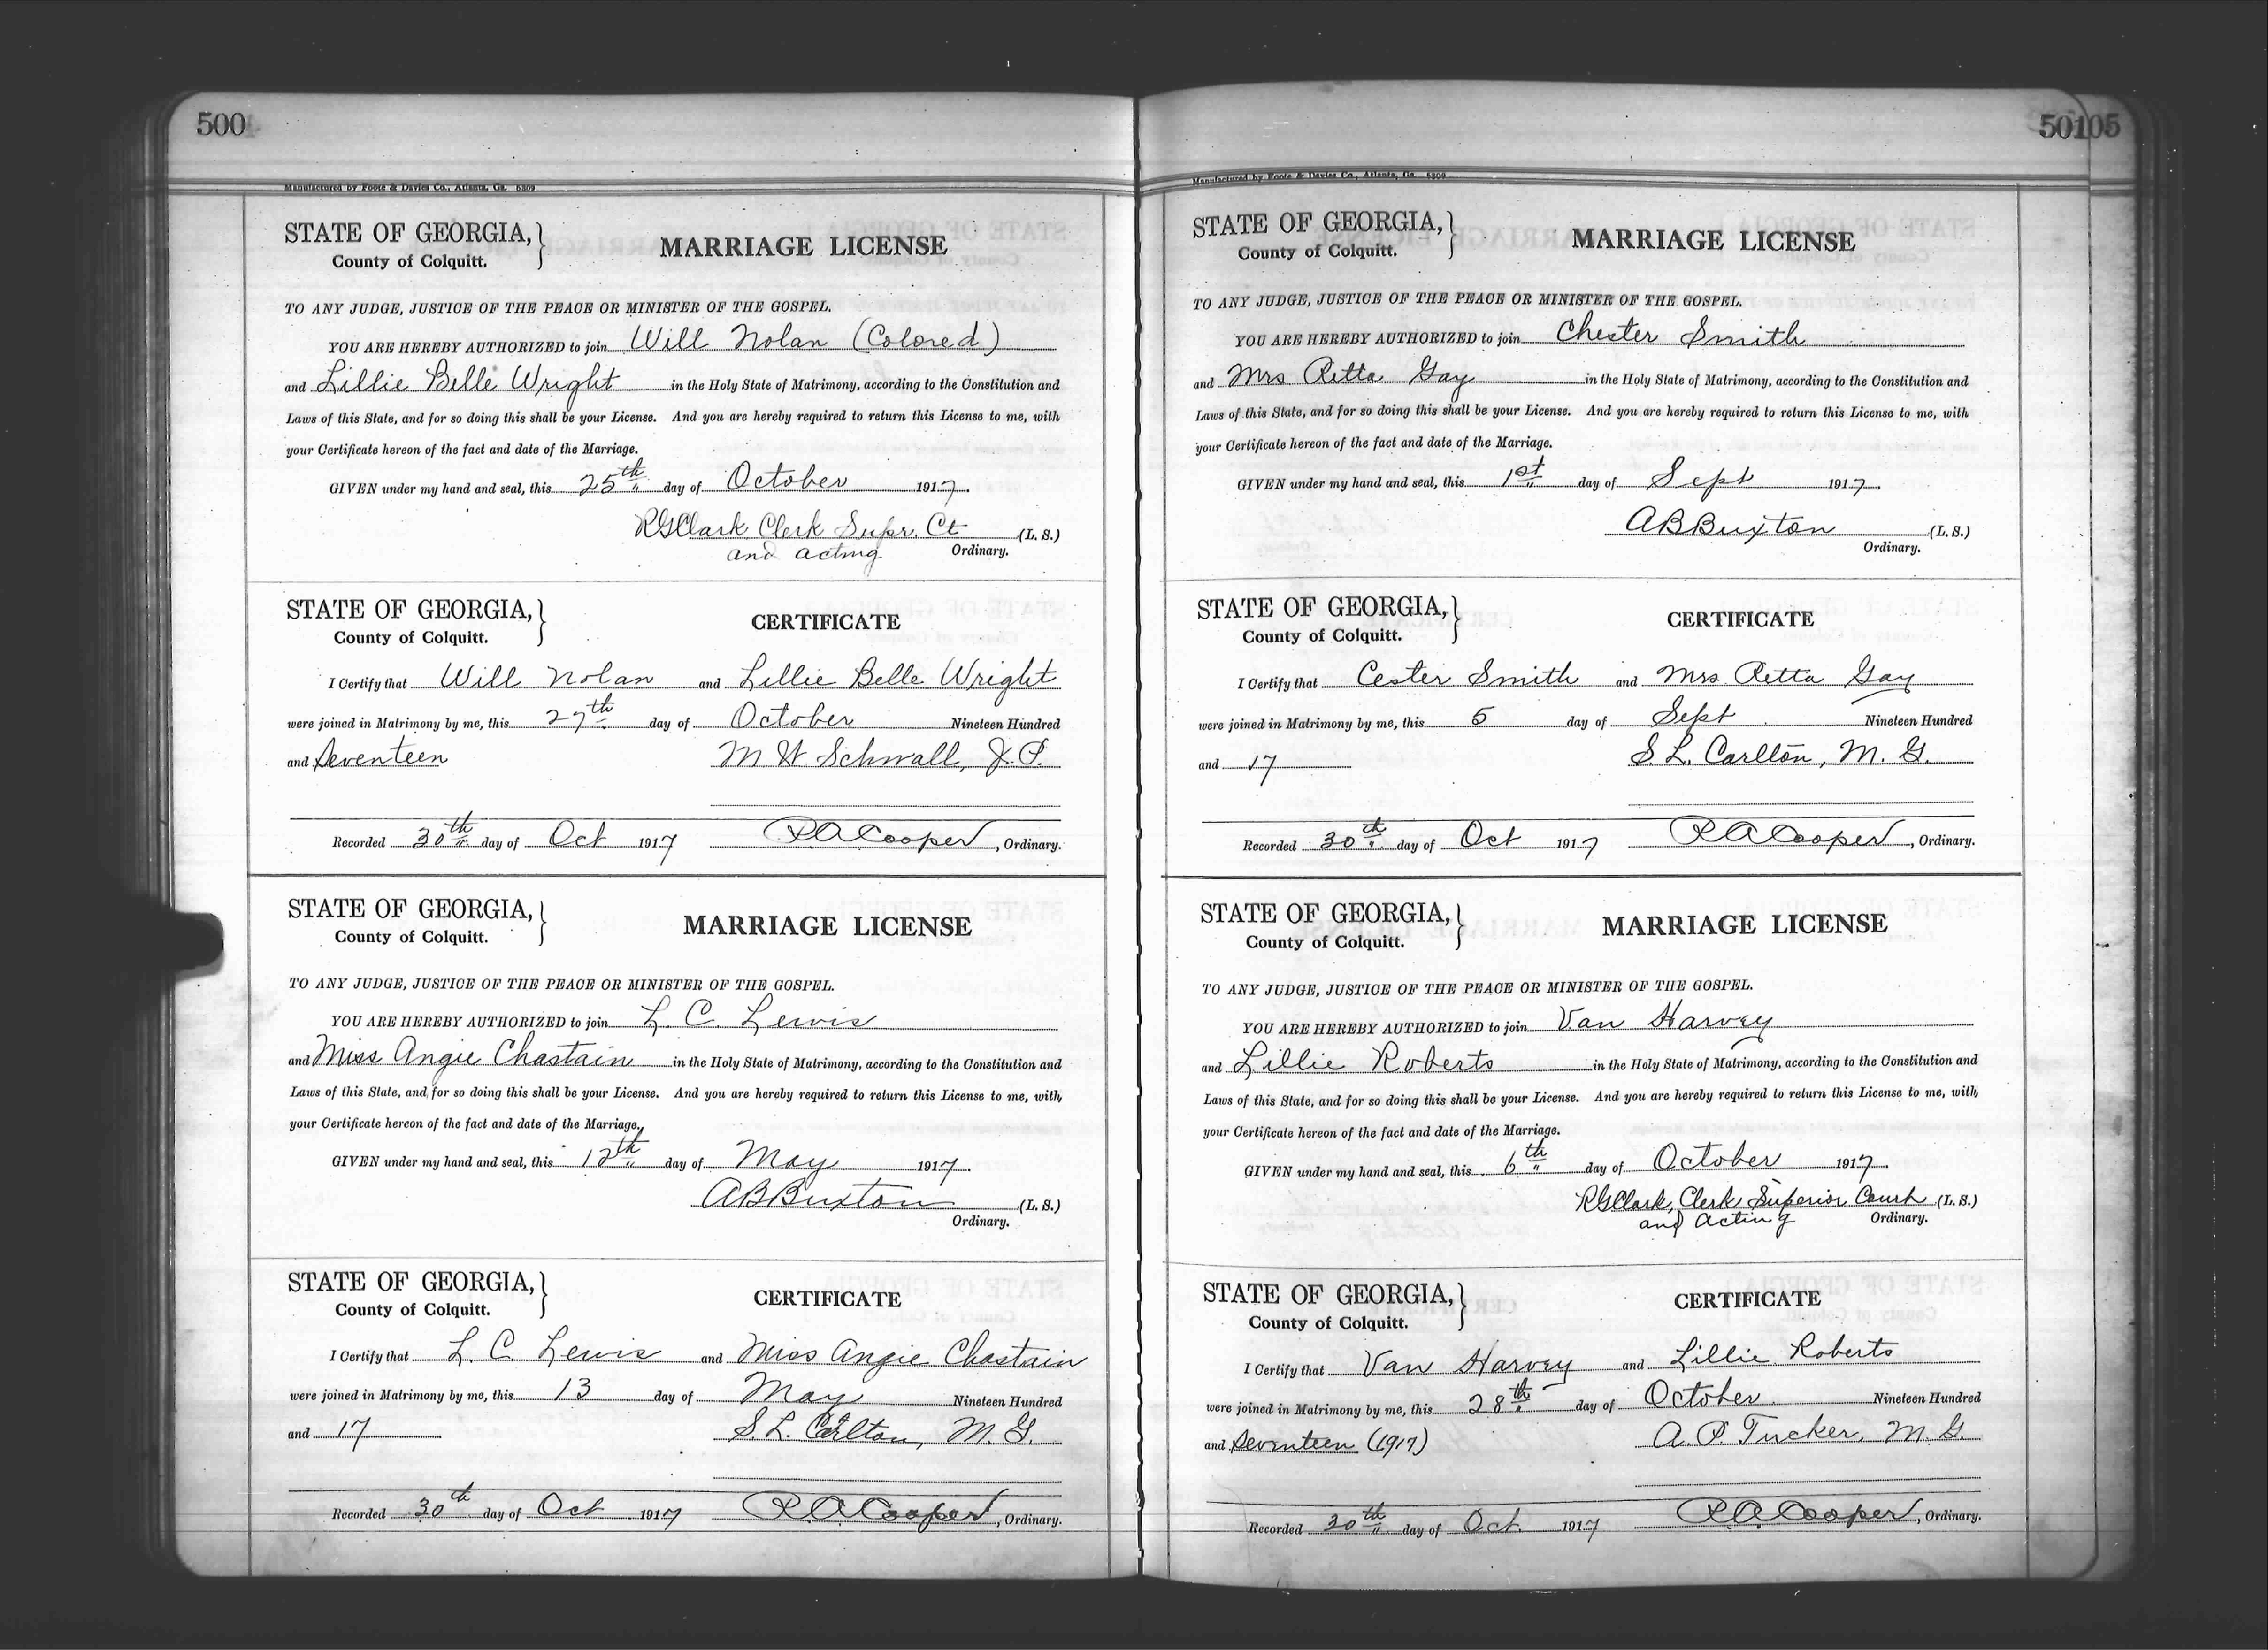 500
Manufactured by Foote & Davies Co., Atlanta, Ga. 5309
STATE OF GEORGIA,
County of Colquitt.
MARRIAGE LICENSE
TO ANY JUDGE, JUSTICE OF THE PEACE OR MINISTER OF THE GOSPEL.
YOU ARE HEREBY AUTHORIZED to join Will Nolan (Colored)
and Lillie Belle Wright in the Holy State of Matrimony, according to the Constitution and
Laws of this State, and for so doing this shall be your License. And you are hereby required to return this License to me, with
your Certificate hereon of the fact and date of the Marriage.
GIVEN under my hand and seal, this 25th day of October 1917.
RGClark Clerk Supr. Ct (L. S.)
and acting Ordinary.
STATE OF GEORGIA,
County of Colquitt.
CERTIFICATE
I Certify that Will Nolan and Lillie Belle Wright
were joined in Matrimony by me, this 27th day of October Nineteen Hundred
and Seventeen M W Schwall, J.P.
Recorded 30th day of Oct 1917 RACooper, Ordinary.
STATE OF GEORGIA,
County of Colquitt.
MARRIAGE LICENSE
TO ANY JUDGE, JUSTICE OF THE PEACE OR MINISTER OF THE GOSPEL.
YOU ARE HEREBY AUTHORIZED to join L. C. Lewis
and Miss Angie Chastain in the Holy State of Matrimony, according to the Constitution and
Laws of this State, and for so doing this shall be your License. And you are hereby required to return this License to me, with
your Certificate hereon of the fact and date of the Marriage.
GIVEN under my hand and seal, this 12th day of May 1917.
ABBuxton (L. S.)
Ordinary.
STATE OF GEORGIA,
County of Colquitt.
CERTIFICATE
I Certify that L. C. Lewis and Miss Angie Chastain
were joined in Matrimony by me, this 13 day of May Nineteen Hundred
and 17 S. L. Carlton, M. G.
Recorded 30th day of Oct 1917 RACooper, Ordinary.
50105
Manufactured by Foote & Davies Co., Atlanta, Ga. 5309
STATE OF GEORGIA,
County of Colquitt.
MARRIAGE LICENSE
TO ANY JUDGE, JUSTICE OF THE PEACE OR MINISTER OF THE GOSPEL.
YOU ARE HEREBY AUTHORIZED to join Chester Smith
and Mrs Retta Gay in the Holy State of Matrimony, according to the Constitution and
Laws of this State, and for so doing this shall be your License. And you are hereby required to return this License to me, with
your Certificate hereon of the fact and date of the Marriage.
GIVEN under my hand and seal, this 1st day of Sept 1917.
ABBuxton (L. S.)
Ordinary.
STATE OF GEORGIA,
County of Colquitt.
CERTIFICATE
I Certify that Cester Smith and Mrs Retta Gay
were joined in Matrimony by me, this 5 day of Sept Nineteen Hundred
and 17 S. L. Carlton, M. G.
Recorded 30th day of Oct 1917 RACooper, Ordinary.
STATE OF GEORGIA,
County of Colquitt.
MARRIAGE LICENSE
TO ANY JUDGE, JUSTICE OF THE PEACE OR MINISTER OF THE GOSPEL.
YOU ARE HEREBY AUTHORIZED to join Van Harvey
and Lillie Roberts in the Holy State of Matrimony, according to the Constitution and
Laws of this State, and for so doing this shall be your License. And you are hereby required to return this License to me, with
your Certificate hereon of the fact and date of the Marriage.
GIVEN under my hand and seal, this 6th day of October 1917.
RGClark, Clerk Superior Court (L. S.)
and Acting Ordinary.
STATE OF GEORGIA,
County of Colquitt.
CERTIFICATE
I Certify that Van Harvey and Lillie Roberts
were joined in Matrimony by me, this 28th day of October Nineteen Hundred
and Seventeen (1917) A. P Tucker, M. G.
Recorded 30th day of Oct. 1917 RACooper, Ordinary.